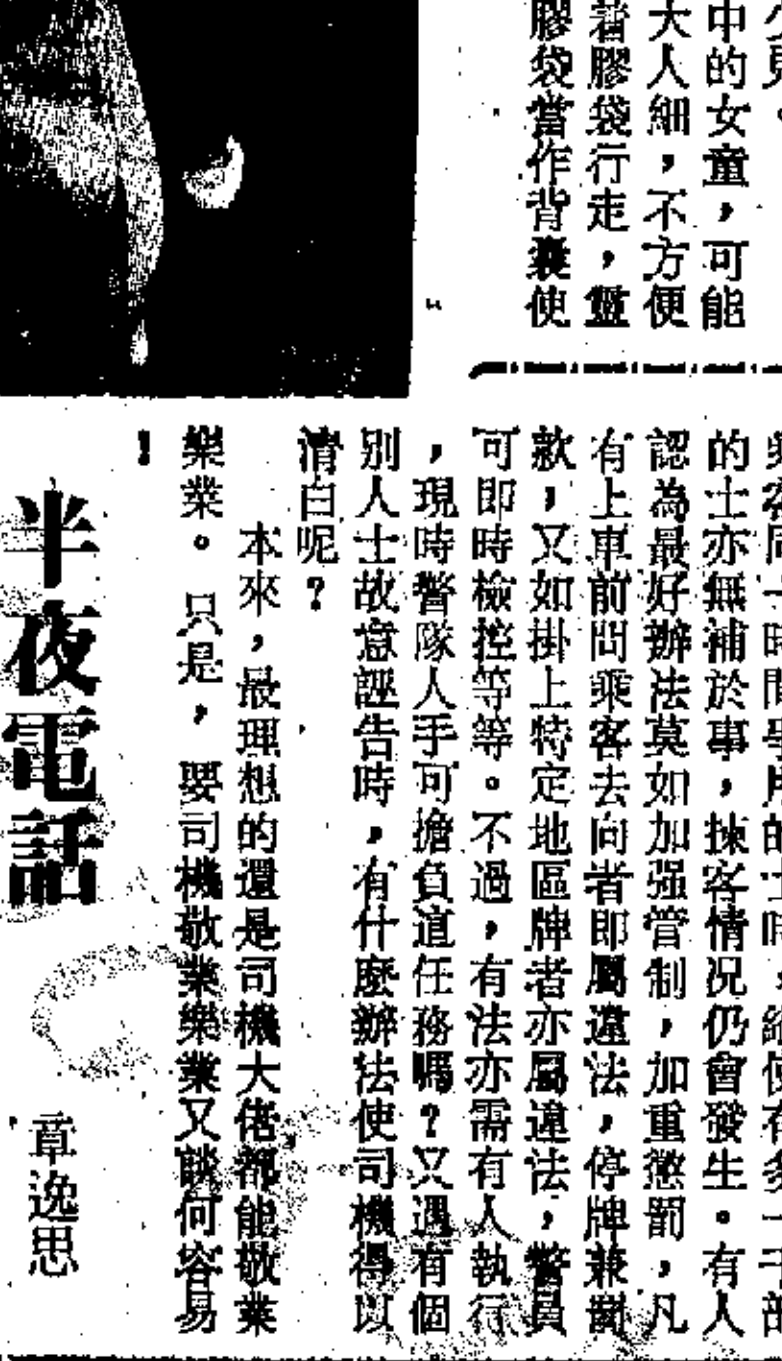 少見。
中的女童，可能
大人細，不方便
着膠袋行走，靈
膠袋當作背囊使
的士亦無補於事，揀客情况仍會發生。有人
認為最好辦法莫如加强管制，加重懲罰，凡
有上車前問乘客去向者即屬違法，停牌兼罰
款，又如掛上特定地區牌者亦屬違法，警員
可即時檢控等等。不過，有法亦需有人執行
，現時警隊人手可擔負道任務嗎？又遇有個
別人士故意誣告時，有什麼辦法使司機得以
清白呢？
本來，最理想的還是司機大佬都能敬業
樂業。只是，要司機敬業樂業又談何容易
！
半夜電話
章逸思